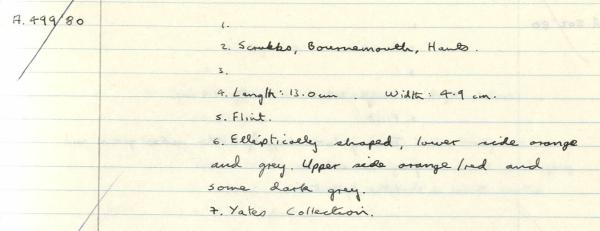 A.499/80
1.
2. Scrubbs, Bournemouth, Hants.
3.
4. Length: 13.0cm. Width: 4.9 cm.
5. Flint.
6. Elliptically shaped, lower side orange
and grey. Upper side orange/red and
some dark grey.
7. Yates Collection.